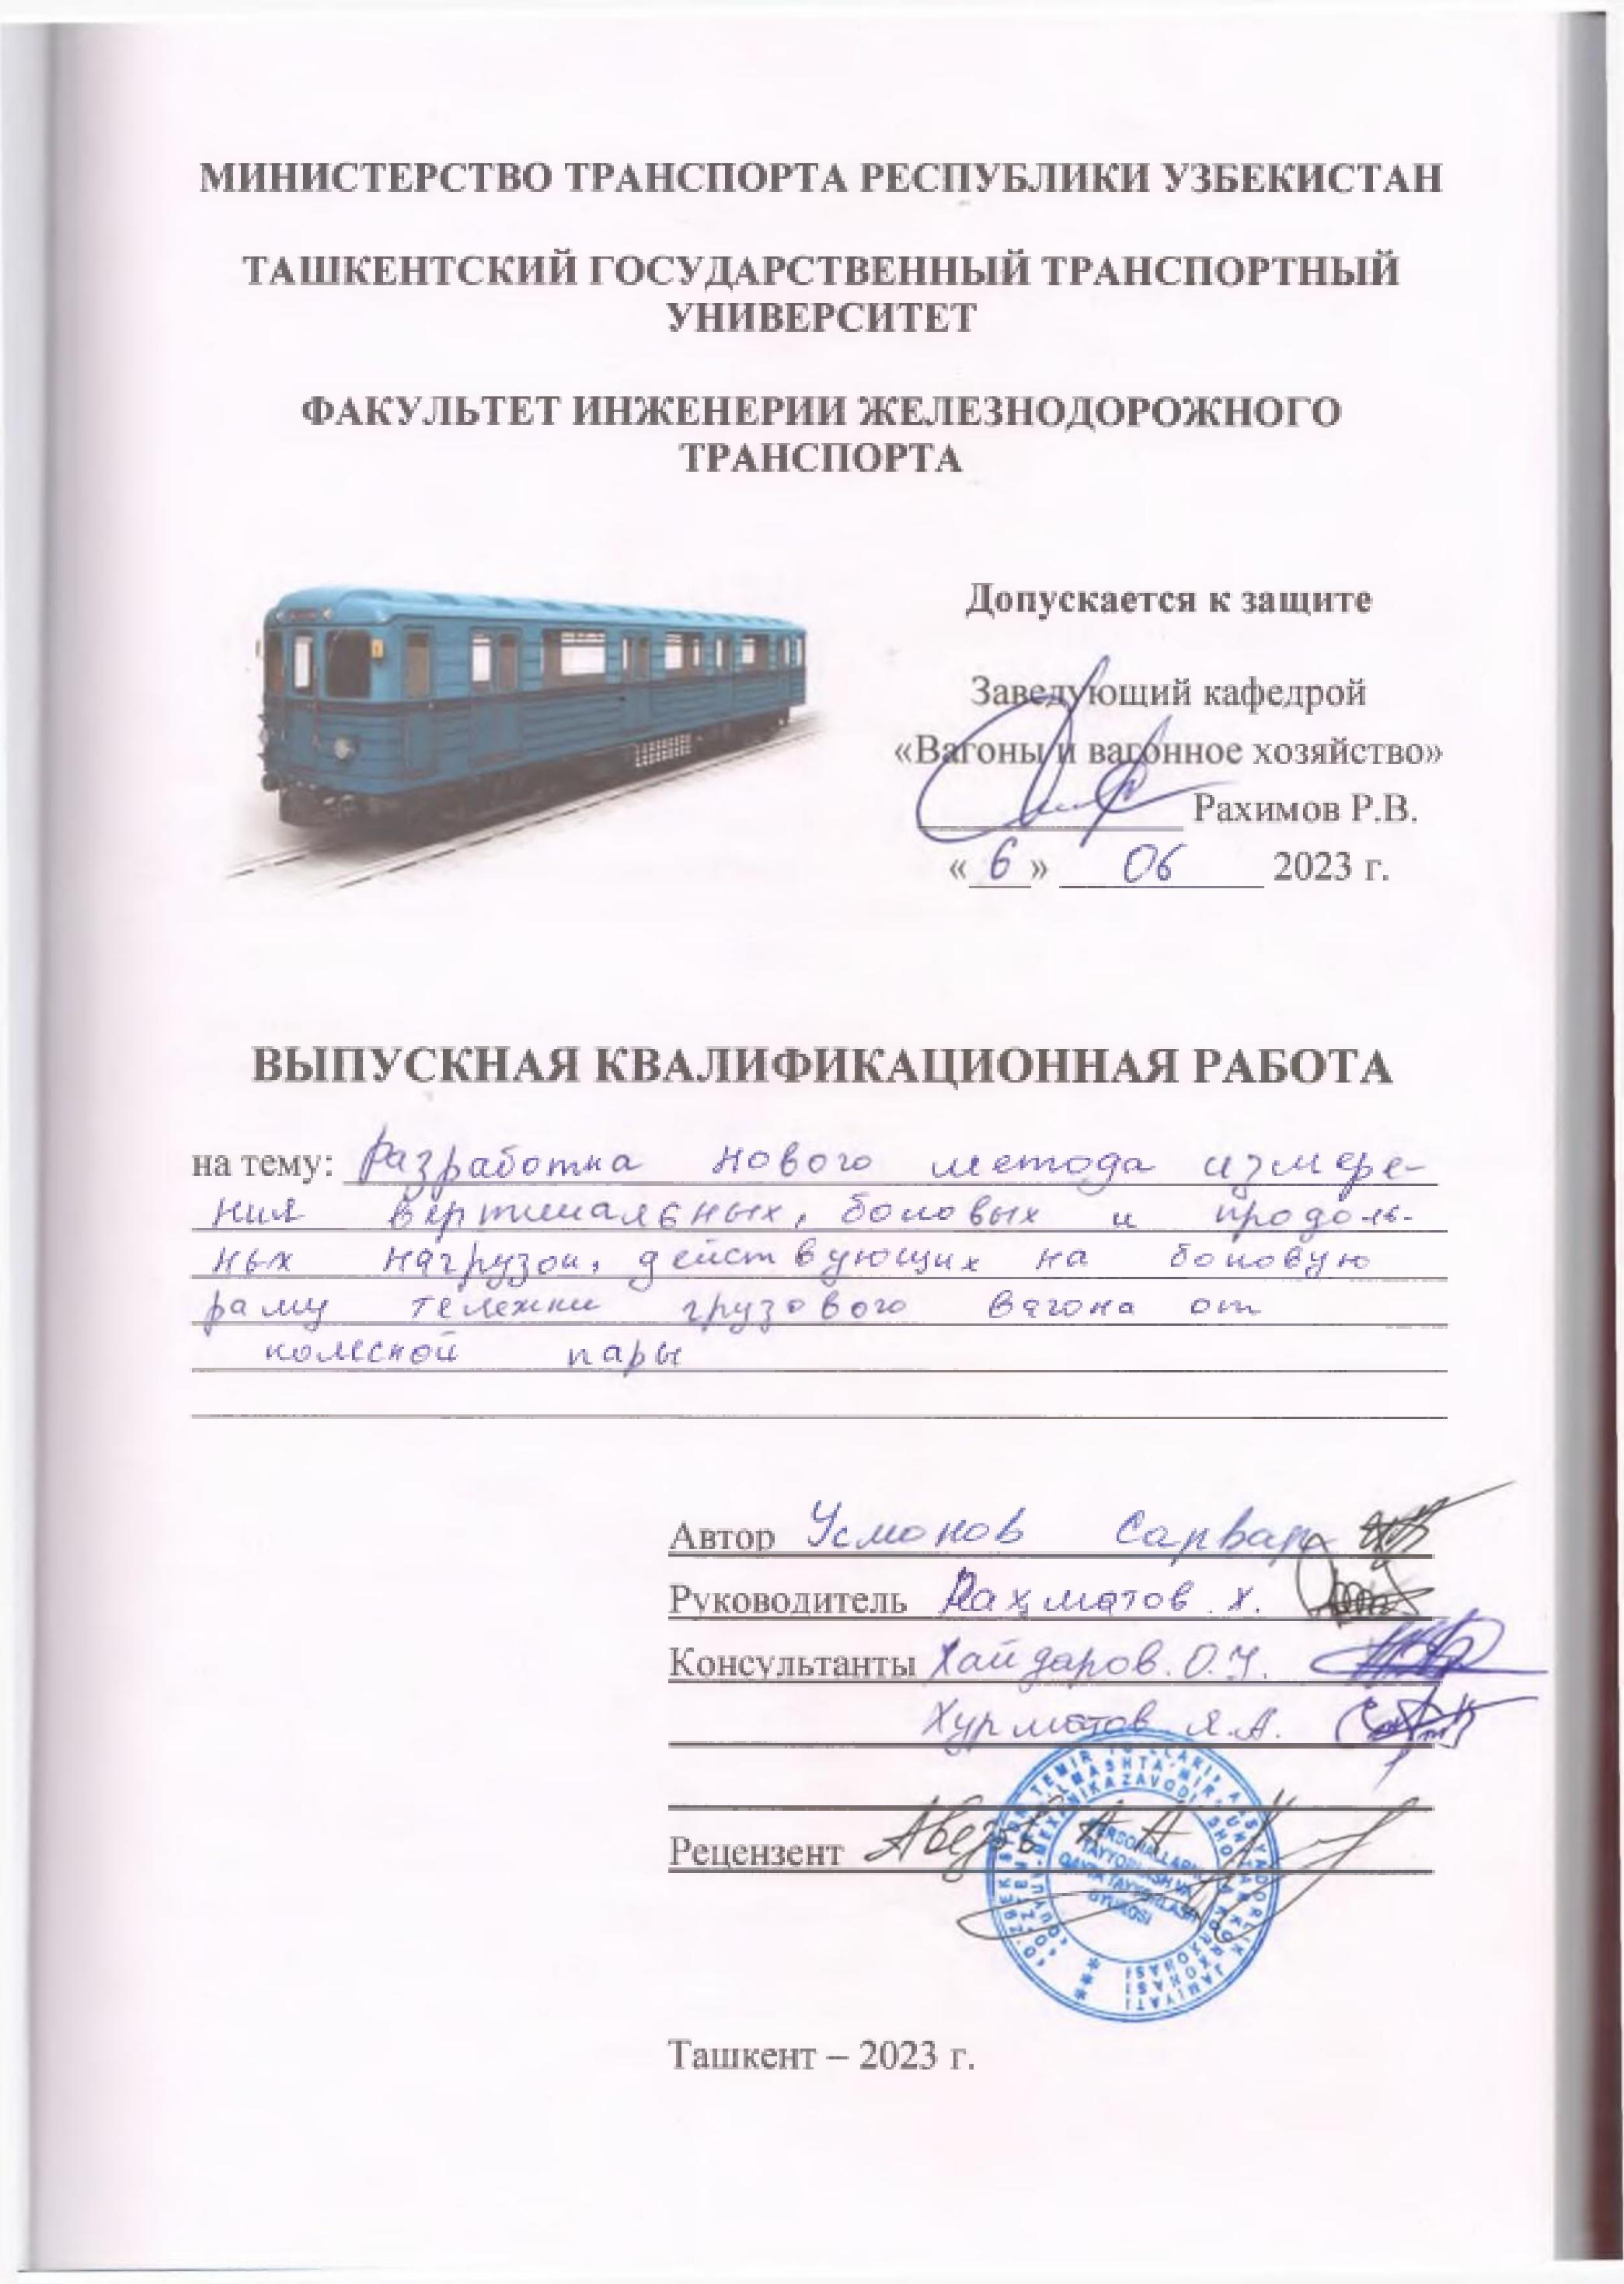 МИНИСТЕРСТВО ТРАНСПОРТА РЕСПУБЛИКИ УЗБЕКИСТАН
ТАШКЕНТСКИЙ ГОСУДАРСТВЕННЫЙ ТРАНСПОРТНЫЙ
УНИВЕРСИТЕТ
ФАКУЛЬТЕТ ИНЖЕНЕРИИ ЖЕЛЕЗНОДОРОЖНОГО
ТРАНСПОРТА
Допускается к защите
Заведующий кафедрой
«Вагоны и вагонное хозяйство»
Рахимов Р.В.
« 6 » 06 2023 г.
ВЫПУСКНАЯ КВАЛИФИКАЦИОННАЯ РАБОТА
на тему: Разработка нового метода измере-
ния вертикальных, боковых и продоль-
ных нагрузок, действующих на боковую
раму тележки грузового вагона от
колесной пары
Автор Усмонов Сарвар
Руководитель Рахматов Х.
Консультанты Хайдаров О.У.
Хурматов Я.А.
Рецензент
PERSONALLARNI
TAYYORLASH VA
QAYTA TAYYORLASH
Ташкент – 2023 г.